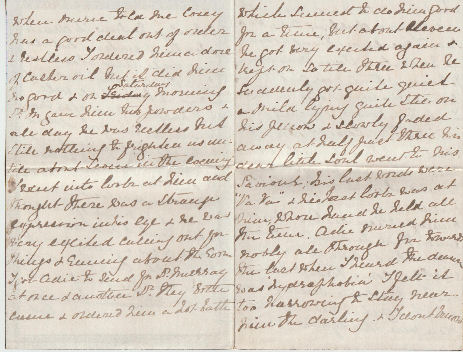 When nurse told me Corey
was a good deal out of order
& restless I ordered him a dose
of castor oil but it did him
no good & on Saturday morning
Dr M gave him two powders &
all day he was restless but
still nothing to frighten us un-
-til about seven in the evening
I went in to look at him and
thought there was a strange
expression in his eye & he was
very excited calling out for
things & running about the room
I got Adie to send for Dr Murray
at once & another Dr they both
came & ordered him a hot bath
which seemed to do him good
for a time, but about eleven
he got very excited again &
kept on so till three when he
suddenly got quite quiet
& mild lying quite still on
his & slowly faded
away at half past three his
dear little soul went to his
Saviour, his last words were
& his last look was at
whose hand he held all
the time. Adie nursed him
nobly all through for towards
the last when I heard the
was hydrophobia I felt it
too harrowing to stay near
him the darling & I don't know